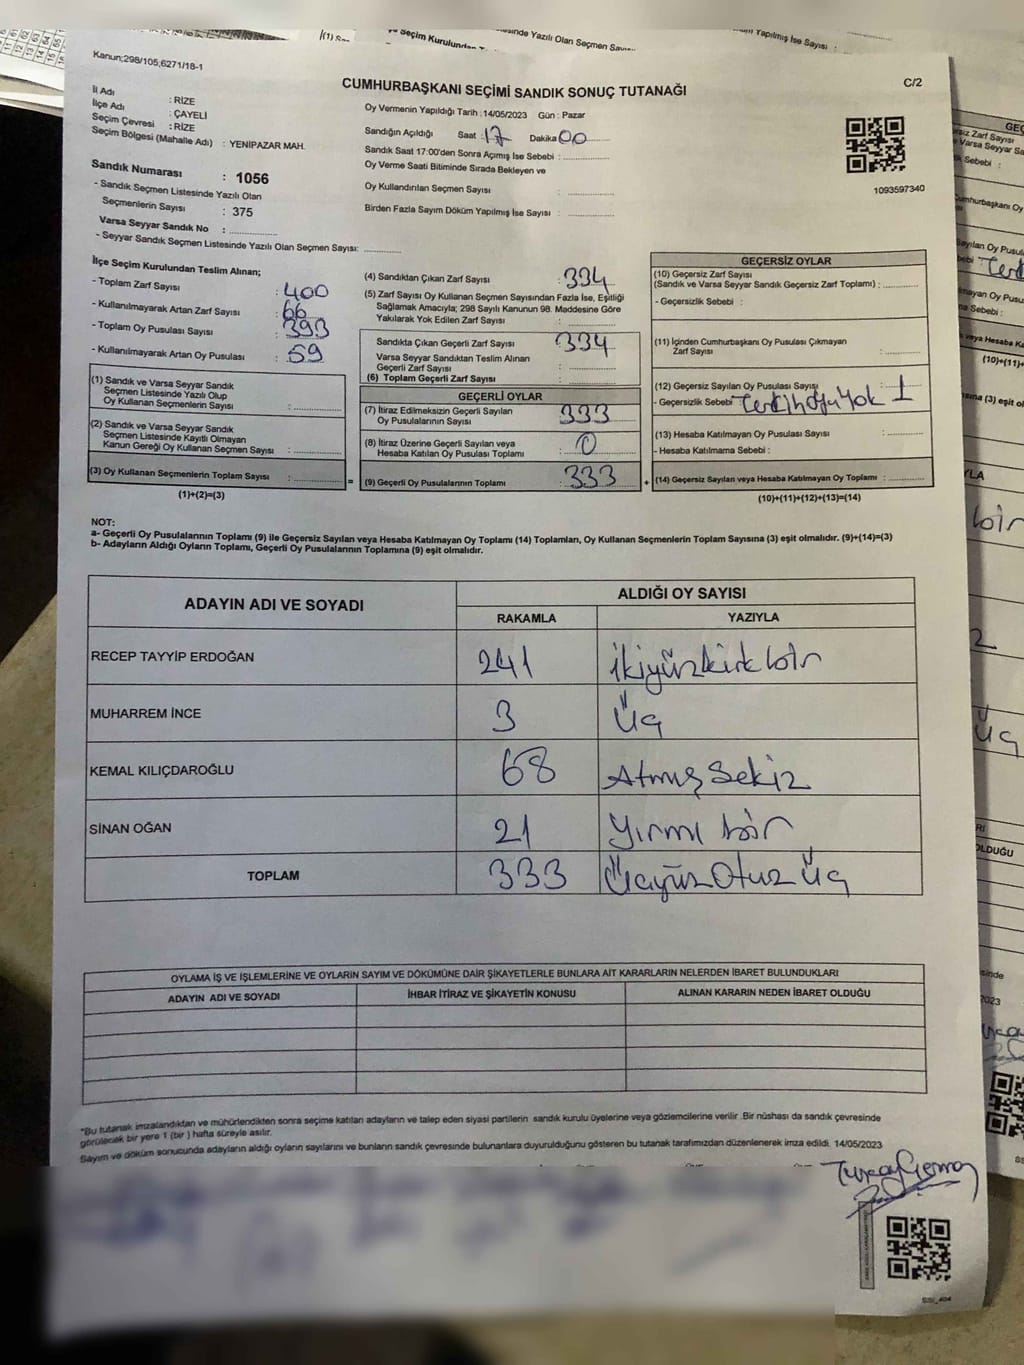 Kanun;298/105,6271/18-1
CUMHURBAŞKANI SEÇİMİ SANDIK SONUÇ TUTANAĞI
C/2
İl Adı : RİZE
İlçe Adı : ÇAYELİ
Seçim Çevresi : RİZE
Seçim Bölgesi (Mahalle Adı) : YENİPAZAR MAH.
Oy Vermenin Yapıldığı Tarih : 14/05/2023 Gün : Pazar
Sandığın Açıldığı Saat : 17 Dakika 00
Sandık Saat 17:00'den Sonra Açımış İse Sebebi :
Oy Verme Saati Bitiminde Sırada Bekleyen ve
Oy Kullandırılan Seçmen Sayısı :
Birden Fazla Sayım Döküm Yapılmış İse Sayısı :
1093597340
Sandık Numarası : 1056
- Sandık Seçmen Listesinde Yazılı Olan
Seçmenlerin Sayısı : 375
Varsa Seyyar Sandık No :
- Seyyar Sandık Seçmen Listesinde Yazılı Olan Seçmen Sayısı:
İlçe Seçim Kurulundan Teslim Alınan;
- Toplam Zarf Sayısı : 400
- Kullanılmayarak Artan Zarf Sayısı : 66
- Toplam Oy Pusulası Sayısı : 393
- Kullanılmayarak Artan Oy Pusulası : 59
(1) Sandık ve Varsa Seyyar Sandık
Seçmen Listesinde Yazılı Olup
Oy Kullanan Seçmenlerin Sayısı :
(2) Sandık ve Varsa Seyyar Sandık
Seçmen Listesinde Kayıtlı Olmayan
Kanun Gereği Oy Kullanan Seçmen Sayısı :
(3) Oy Kullanan Seçmenlerin Toplam Sayısı : =
(1)+(2)=(3)
(4) Sandıktan Çıkan Zarf Sayısı : 334
(5) Zarf Sayısı Oy Kullanan Seçmen Sayısından Fazla İse, Eşitliği
Sağlamak Amacıyla; 298 Sayılı Kanunun 98. Maddesine Göre
Yakılarak Yok Edilen Zarf Sayısı :
Sandıkta Çıkan Geçerli Zarf Sayısı : 334
Varsa Seyyar Sandıktan Teslim Alınan
Geçerli Zarf Sayısı :
(6) Toplam Geçerli Zarf Sayısı :
GEÇERLİ OYLAR
(7) İtiraz Edilmeksizin Geçerli Sayılan
Oy Pusulalarının Sayısı : 333
(8) İtiraz Üzerine Geçerli Sayılan veya
Hesaba Katılan Oy Pusulası Toplamı : 0
(9) Geçerli Oy Pusulalarının Toplamı : 333 +
GEÇERSİZ OYLAR
(10) Geçersiz Zarf Sayısı
(Sandık ve Varsa Seyyar Sandık Geçersiz Zarf Toplamı) :
- Geçersizlik Sebebi :
(11) İçinden Cumhurbaşkanı Oy Pusulası Çıkmayan
Zarf Sayısı :
(12) Geçersiz Sayılan Oy Pusulası Sayısı :
- Geçersizlik Sebebi : 1
(13) Hesaba Katılmayan Oy Pusulası Sayısı :
- Hesaba Katılmama Sebebi :
(14) Geçersiz Sayılan veya Hesaba Katılmayan Oy Toplamı :
(10)+(11)+(12)+(13)=(14)
NOT:
a- Geçerli Oy Pusulalarının Toplamı (9) ile Geçersiz Sayılan veya Hesaba Katılmayan Oy Toplamı (14) Toplamları, Oy Kullanan Seçmenlerin Toplam Sayısına (3) eşit olmalıdır. (9)+(14)=(3)
b- Adayların Aldığı Oyların Toplamı, Geçerli Oy Pusulalarının Toplamına (9) eşit olmalıdır.
ADAYIN ADI VE SOYADI
ALDIĞI OY SAYISI
RAKAMLA YAZIYLA
RECEP TAYYİP ERDOĞAN 241 ikiyüzkırkbir
MUHARREM İNCE 3 Üç
KEMAL KILIÇDAROĞLU 68 Atmış Sekiz
SİNAN OĞAN 21 Yırmı bir
TOPLAM 333 Üçyüz Otuz Üç
OYLAMA İŞ VE İŞLEMLERİNE VE OYLARIN SAYIM VE DÖKÜMÜNE DAİR ŞİKAYETLERLE BUNLARA AİT KARARLARIN NELERDEN İBARET BULUNDUKLARI
ADAYIN ADI VE SOYADI
İHBAR İTİRAZ VE ŞİKAYETİN KONUSU
ALINAN KARARIN NEDEN İBARET OLDUĞU
"Bu tutanak imzalandıktan ve mühürlendikten sonra seçime katılan adayların ve talep eden siyasi partilerin sandık kurulu üyelerine veya gözlemcilerine verilir. Bir nüshası da sandık çevresinde
görülecek bir yere 1 (bir) hafta süreyle asılır.
Sayım ve döküm sonucunda adayların aldığı oyların sayılarını ve bunların sandık çevresinde bulunanlara duyurulduğunu gösteren bu tutanak tarafımızdan düzenlenerek imza edildi. 14/05/2023